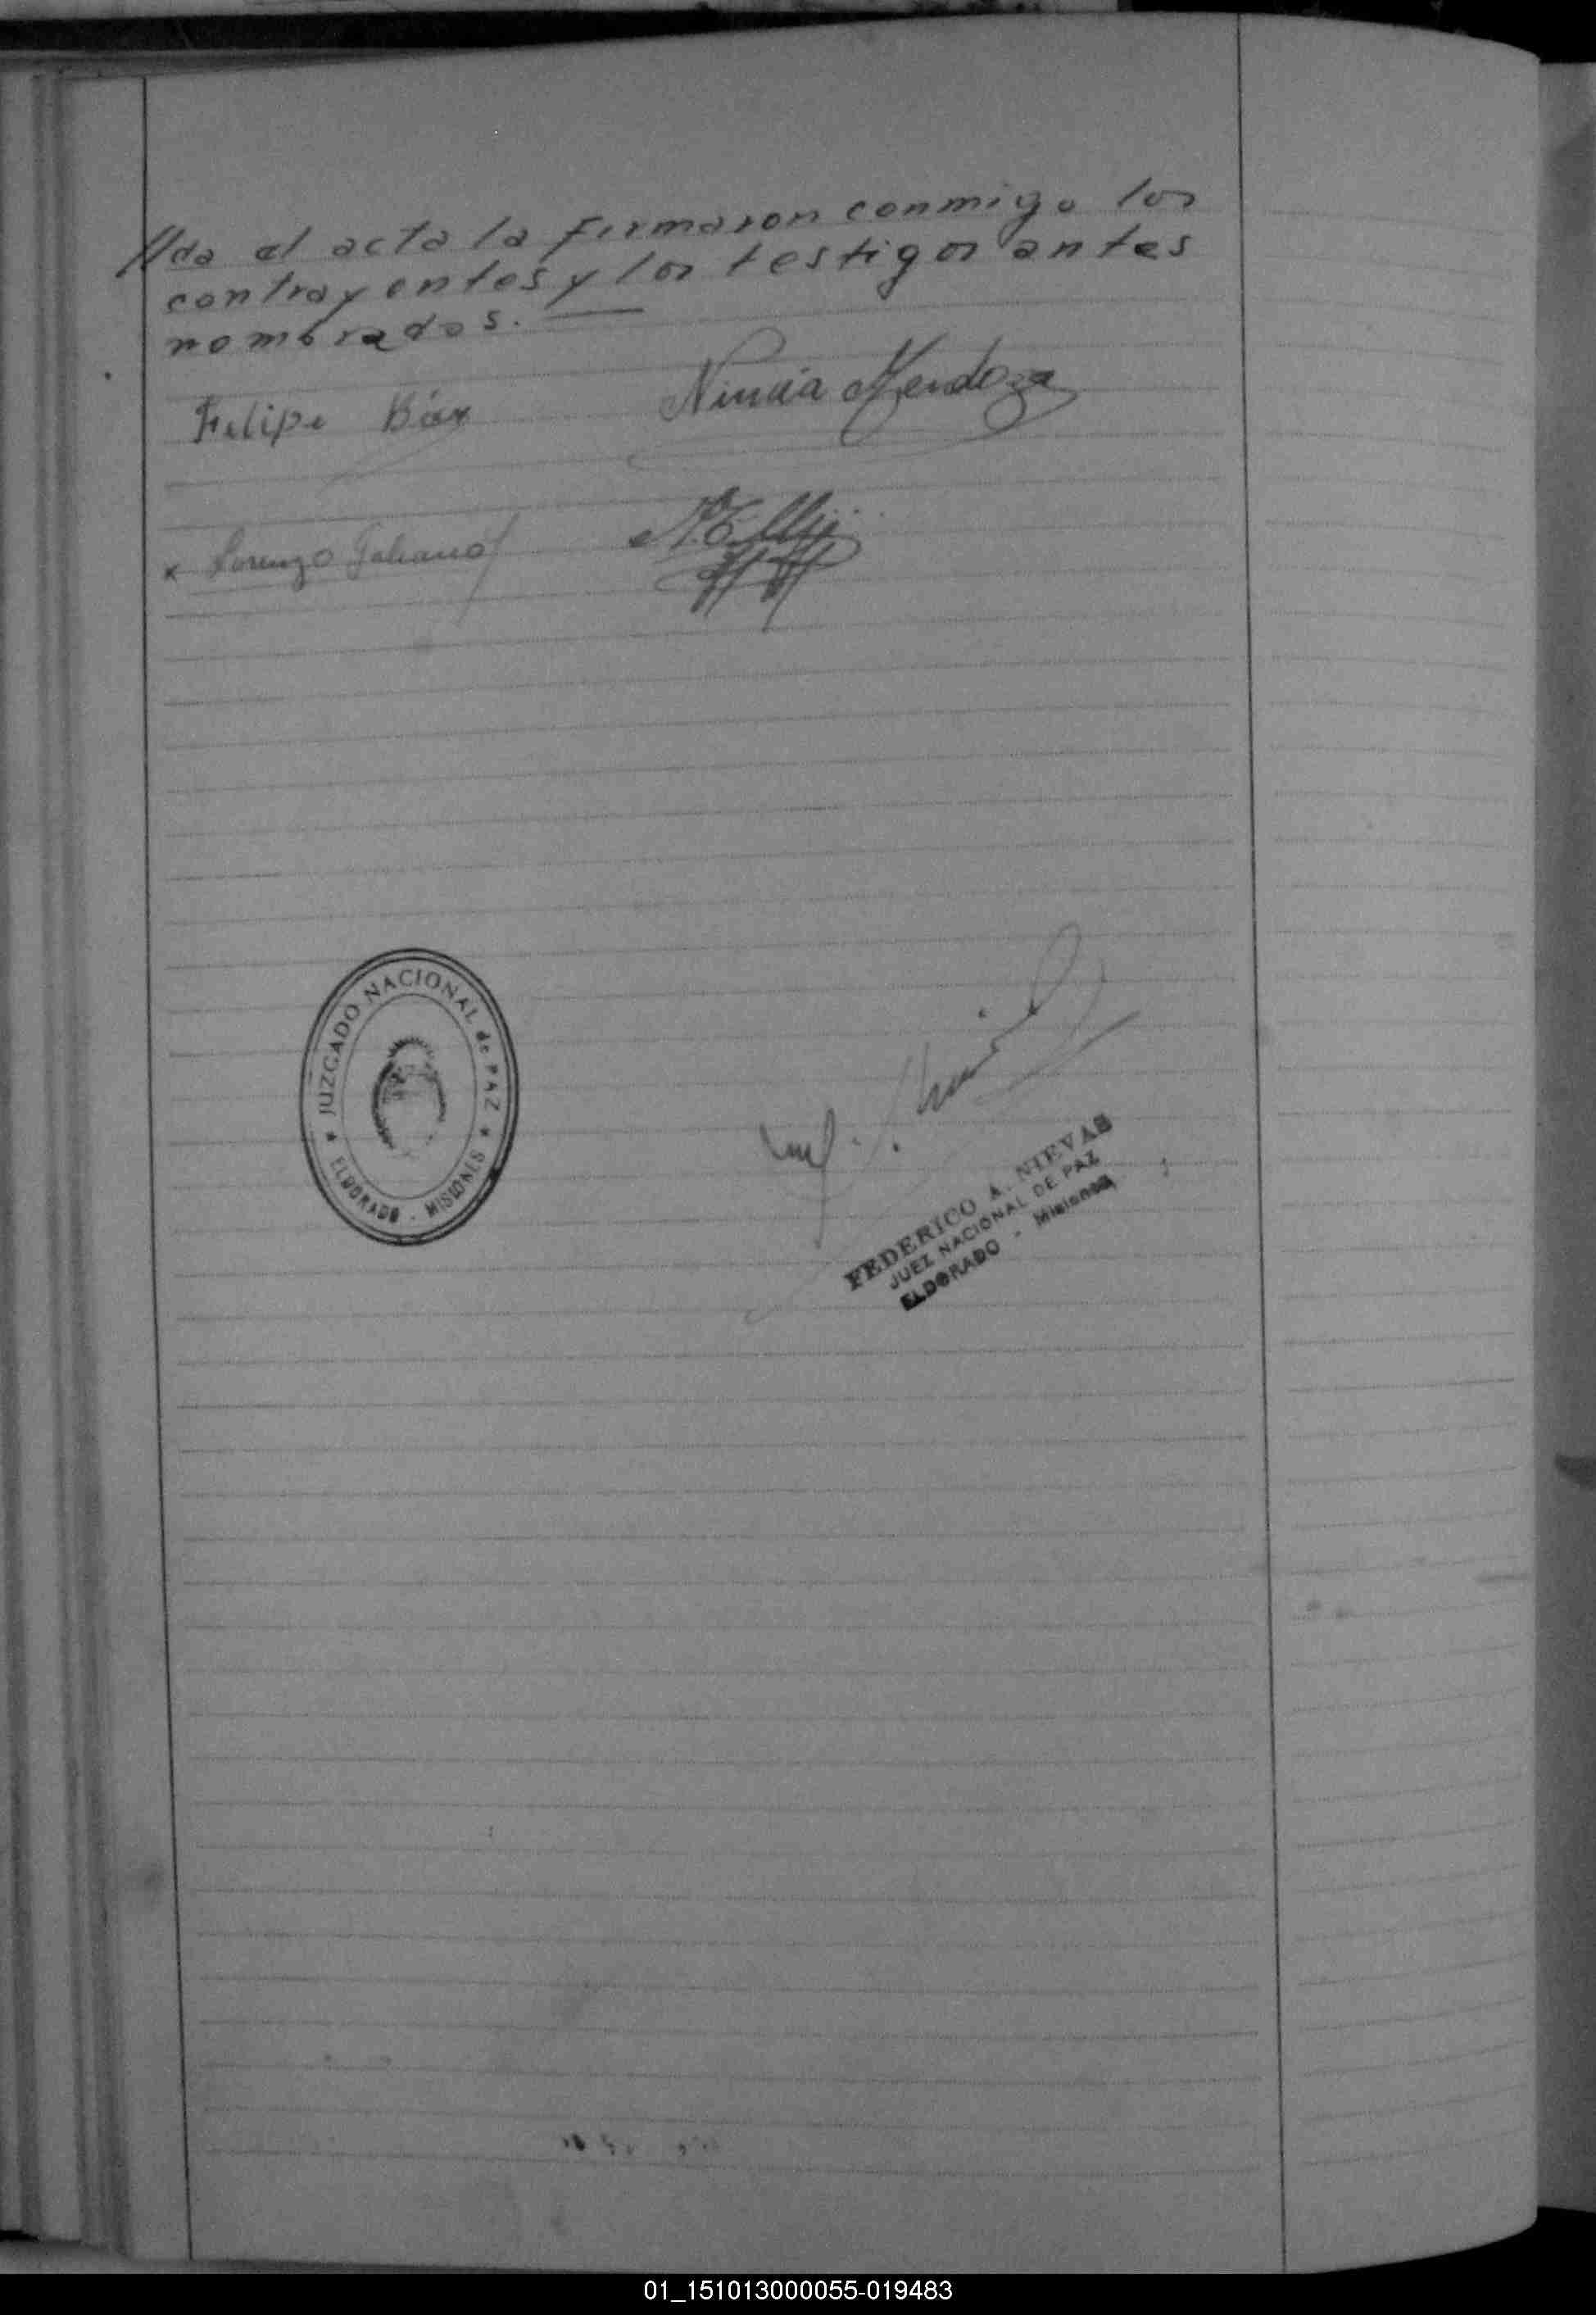 //da el acta la firmaron conmigo los
contrayentes y los testigos antes
nombrados. —
Felipe Báx
Nincia Mendoza
x Lorenzo Galiano
JUZGADO NACIONAL de PAZ
★ ELDORADO - MISIONES ★
FEDERICO A. NIEVAS
JUEZ NACIONAL DE PAZ
ELDORADO - Misiones
01_151013000055-019483